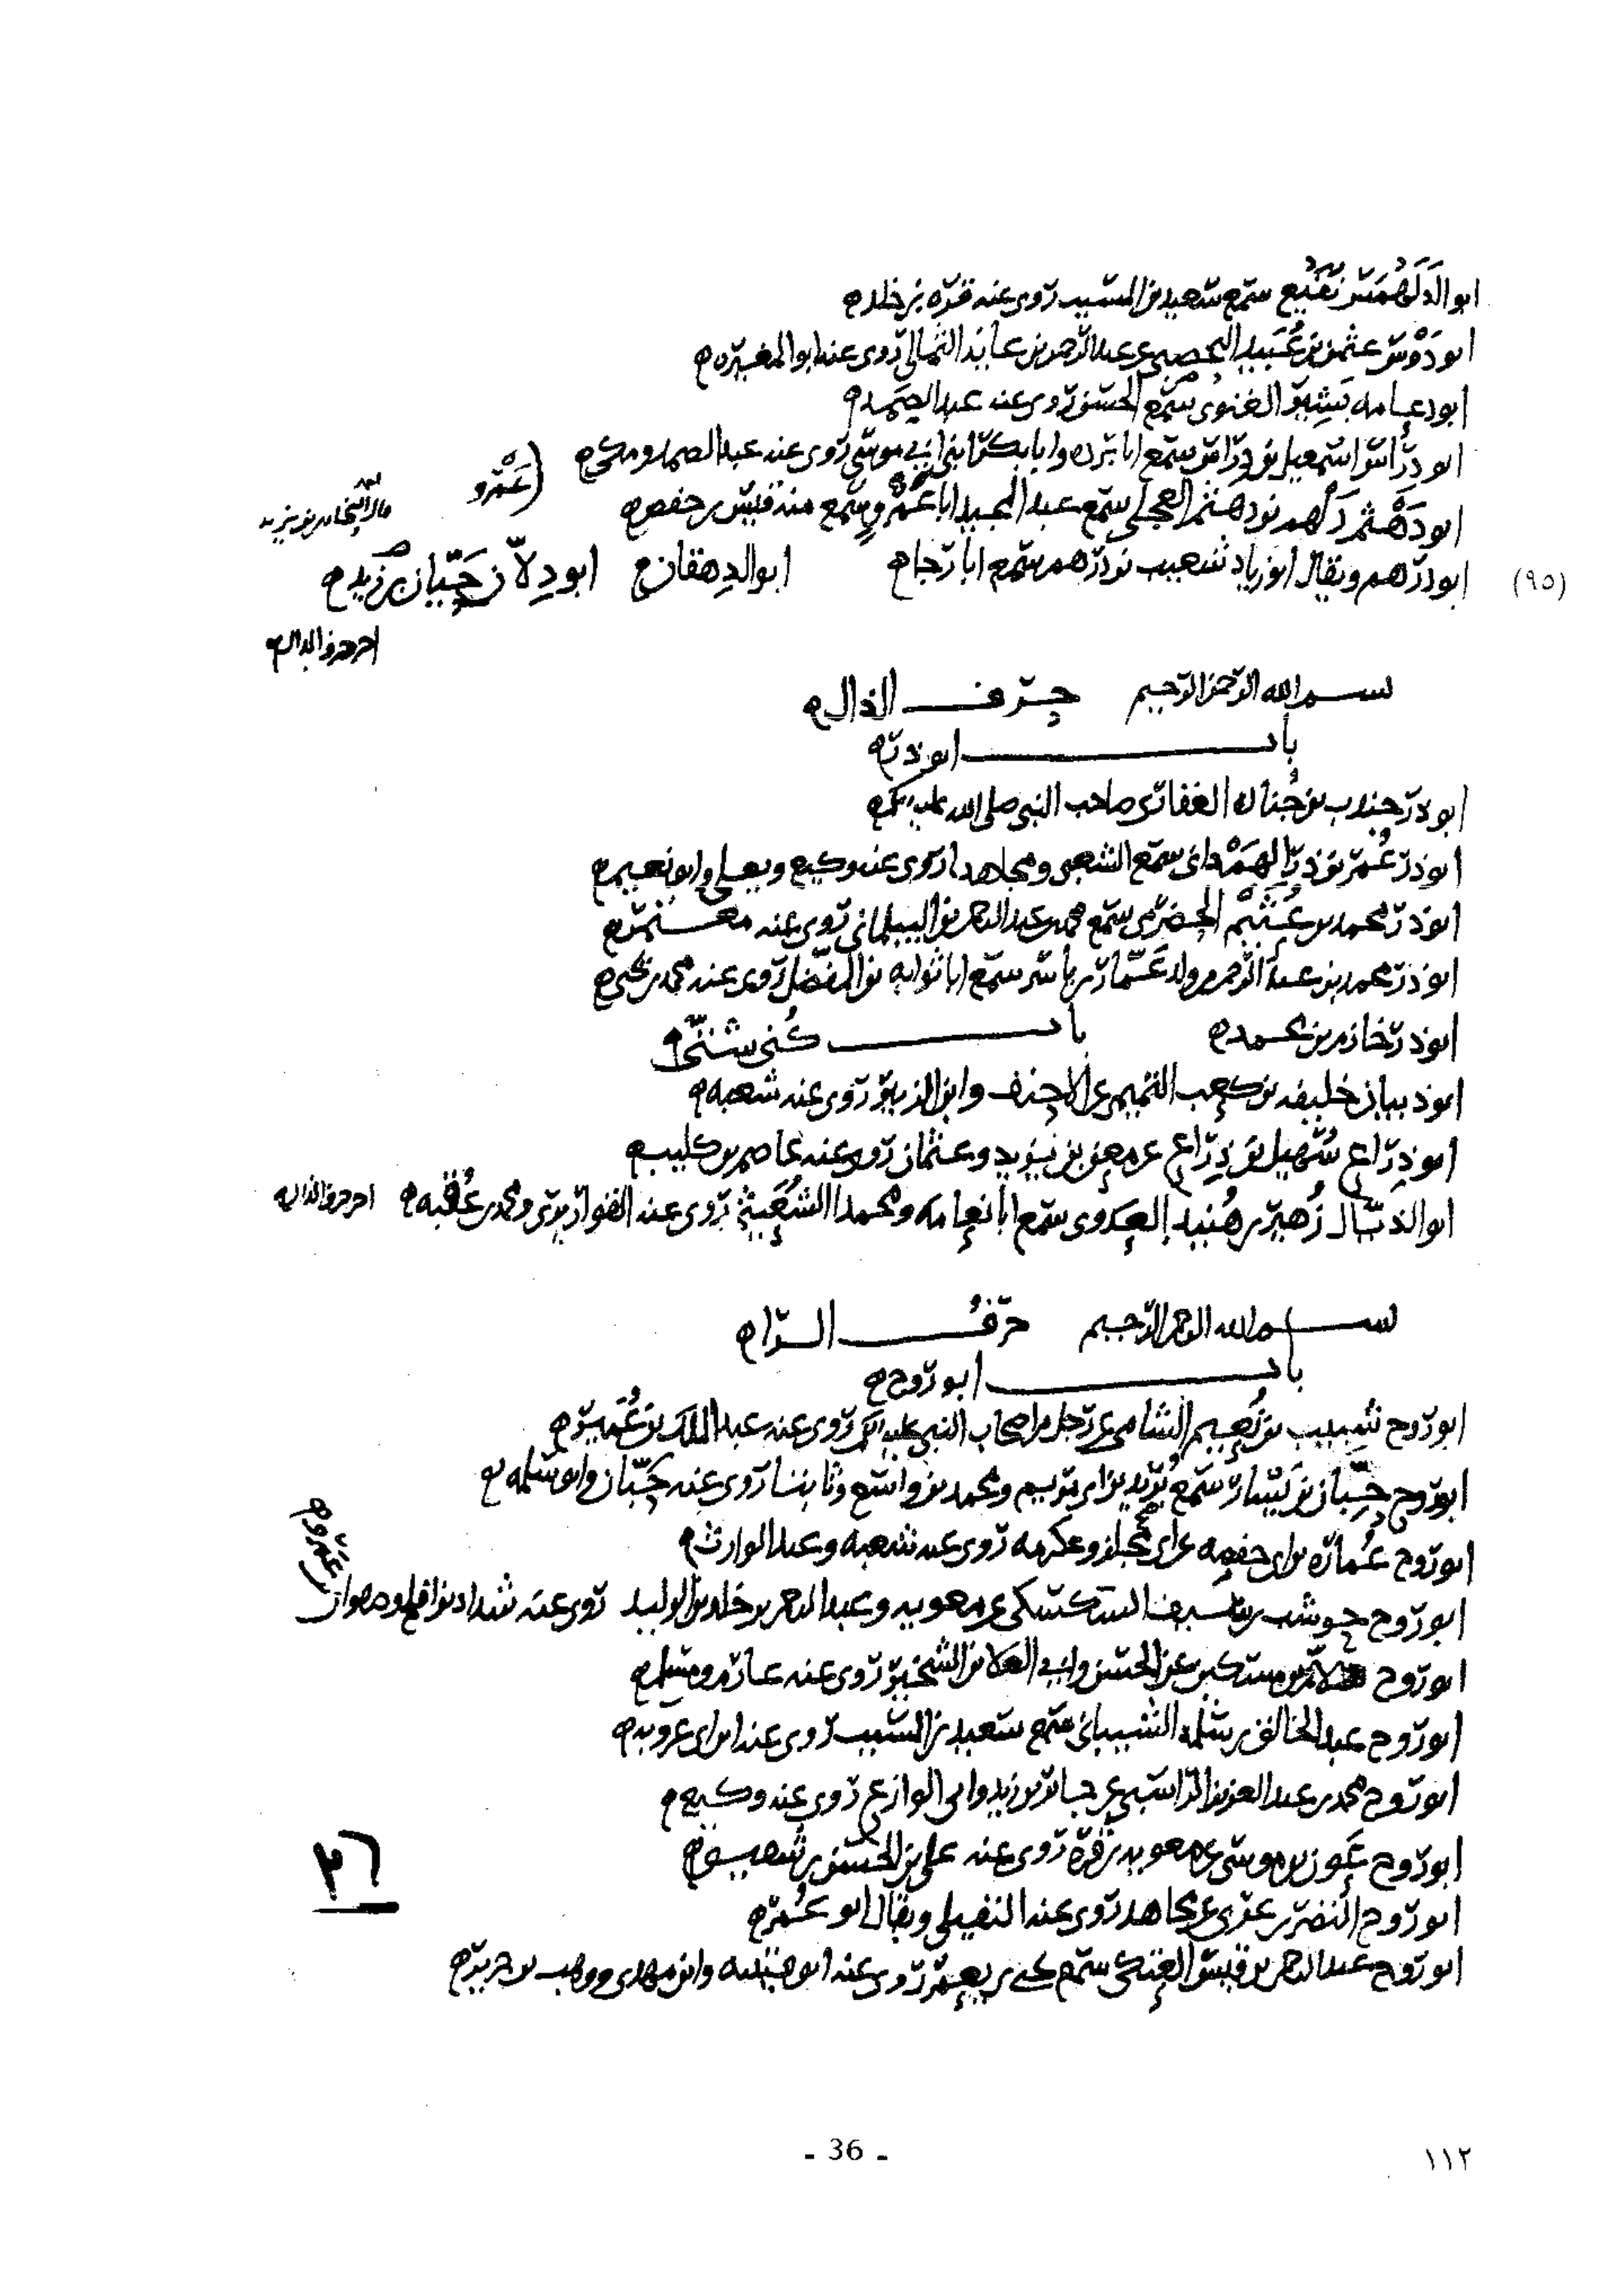 ابو الدَلَهْمَس نفيع سمع سعيد بن المسيب روى عنه قرّه بن خلد
ابو دَوْس عثمن بن عُبَيد اليحصبى عن عبد الرحمن بن عايذ الثمالى روى عنه ابو المغيره
ابو دعامه بشير الغنوى سمع الحسن روى عنه عبد الصمد
ابو درّاس اسمعيل بن درّاس سمع ابا برده وابا بكر ابنى ابى موسى روى عنه عبد الصمد ومكى
(عَمْرو
ابو دَهْثم دَلْهم بن دهثم العجلى سمع عبد المجيد ابا عَمْرو سمع منه قيس بن حفص
ابو درهم ويقال ابو زياد شعيب بن درهم سمع ابا رجا ابو الدهقان ابو دِلاّن حَيّان بن يزيد
(٩٥)
اخر حرف الدال
بسم الله الرحمن الرحيم حرف الذال
باب ابو ذر
ابو ذر جندب بن جُناده الغفارى صاحب النبى صلى الله عليه
ابو ذر عُمر بن ذرّ الهَمْدانى سمع الشعبى ومجاهدا روى عنه وكيع ويعلى وابو نعيم
ابو ذر محمد بن عُثَيْم الحضرمى سمع محمد بن عبد الرحمن بن البيلمانى روى عنه معتمر
ابو ذر محمد بن عبد الرحمن من ولد عَمّار بن ياسر سمع ابا ثوابه بن المفضل روى عنه محمد بن يحيى
ابو ذر خازم بن محمد باب كُنى شتّى
ابو ذبيان خليفه بن كعب التميمى عن الاحنف وابن الزبير روى عنه شعبه
ابو ذِرَاع سُهيل بن ذِرَاع عن معن بن يزيد وعثمان روى عنه عاصم بن كليب
ابو الذيّال زُهير بن هُنيد العدوى سمع ابا نعامه ومحمدا الشُعَيثى روى عنه القواريرى ومحمد بن عُقبه اخر حرف الذال
بسم الله الرحمن الرحيم حرف الراء
باب ابو روح
ابو روح شبيب بن نُعيم الشامى عن رجل من اصحاب النبى عليه السلم روى عنه عبد الملك بن عُمير
ابو روح حِبّان بن يسار سمع بُريد بن ابى مريم ومحمد بن واسع وثابتا روى عنه حَبّان وابو سلمه
ابو روح عُماره بن ابى حفصه عن ابى مجلز وعكرمه روى عنه شعبه وعبد الوارث
ابو روح حوشب بن سيف السكسكى عن معويه وعبد الرحمن بن خلد بن الوليد روى عنه شداد بن افلح وصفوان بن عَمْرو
ابو روح سلام بن مسكين عن الحسن وابى العلا بن الشخير روى عنه عارم ومسلم
ابو روح عبد الخالق بن سلمه الشيبانى سمع سعيد بن المسيب روى عنه ابن ابى عروبه
ابو روح محمد بن عبد العزيز الراسبى عن جابر بن زيد وابى الوازع روى عنه وكيع
ابو روح عون بن موسى عن معويه بن قرّة روى عنه على بن الحسن بن شقيق
ابو روح النضر بن عربى عن مجاهد روى عنه النفيلى ويقال ابو عُمر
ابو روح عبد الرحمن بن قيس العتكى سمع يحيى بن يعمر روى عنه ابو قتيبه وابن مهدى ووهب بن جرير
٣٦
- 36 -
١١٢